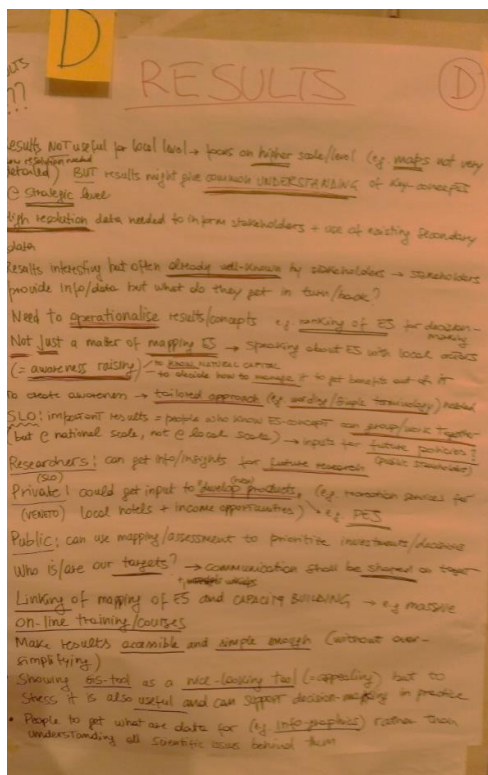 D
RESULTS
D
ULTS
??
esults NOT useful for local level → focus on higher scale/level (e.g. maps not very
resolution needed
detailed) BUT results might give common UNDERSTANDING of key-concepts
@ strategic level
High resolution data needed to inform stakeholders + use of existing secondary
data
Results interesting but often already well-known by stakeholders → stakeholders
provide info/data but what do they get in turn/back?
Need to operationalise results/concepts e.g. ranking of ES for decision-
making
Not just a matter of mapping ES → speaking about ES with local actors
(= awareness raising) → to KNOW NATURAL CAPITAL
→ to decide how to manage it to get benefits out of it
To create awareness → tailored approach (e.g. wording/simple terminology) needed
SLO! important results = people who know ES-concept can group/work together
(but @ national scale, not @ local scale) → inputs for future policies!
(public stakeholders)
Researchers! can get info/insights for future research
(SLO)
Private! could get input to develop (new) products, (e.g. recreation services for
(VENETO) local hotels + income opportunities) → e.g. PES
Public: can use mapping/assessment to prioritize investments/decisions
Who is/are our targets? → communication shall be shaped on target
Linking of mapping of ES and CAPACITY BUILDING → e.g. massive
on-line training/courses
Make results accessible and simple enough (without over-
simplifying)
Showing GIS-tool as a nice-looking tool (=appealing) but to
stress it is also useful and can support decision-making in practice
• People to get what are data for (e.g. info-graphics) rather than
understanding all scientific issues behind them